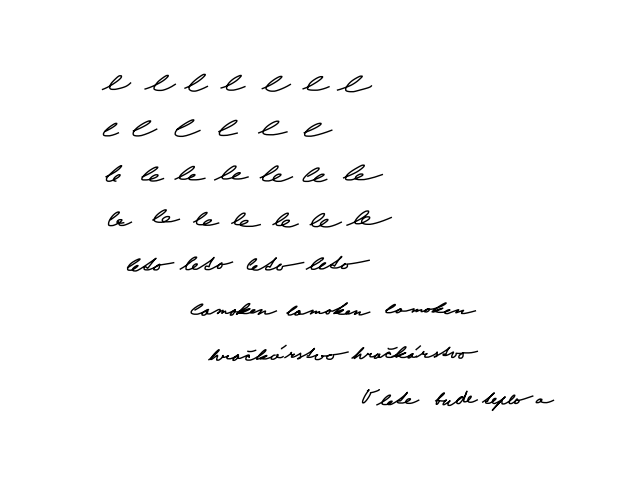 l l l l l l l
l l l l l l
le le le le le le le
le le le le le le le
leto leto leto leto
lamoken lamoken lamoken
hračkárstvo hračkárstvo
V lete bude teplo a